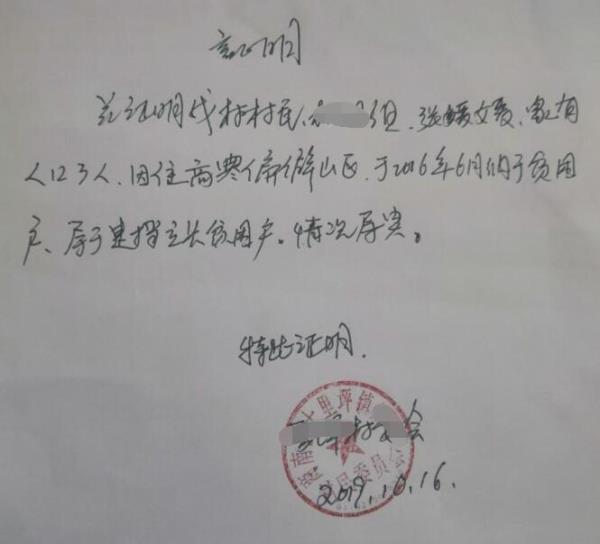 证明
兹证明我村村民、组、张媛文爱、家有
人口3人、因住高寒偏僻山区、于2016年6月纳于贫困
户、属于建档立卡贫困户。情况属实。
特此证明.
村委会
七里坪镇 村民委员会
2019.10.16.